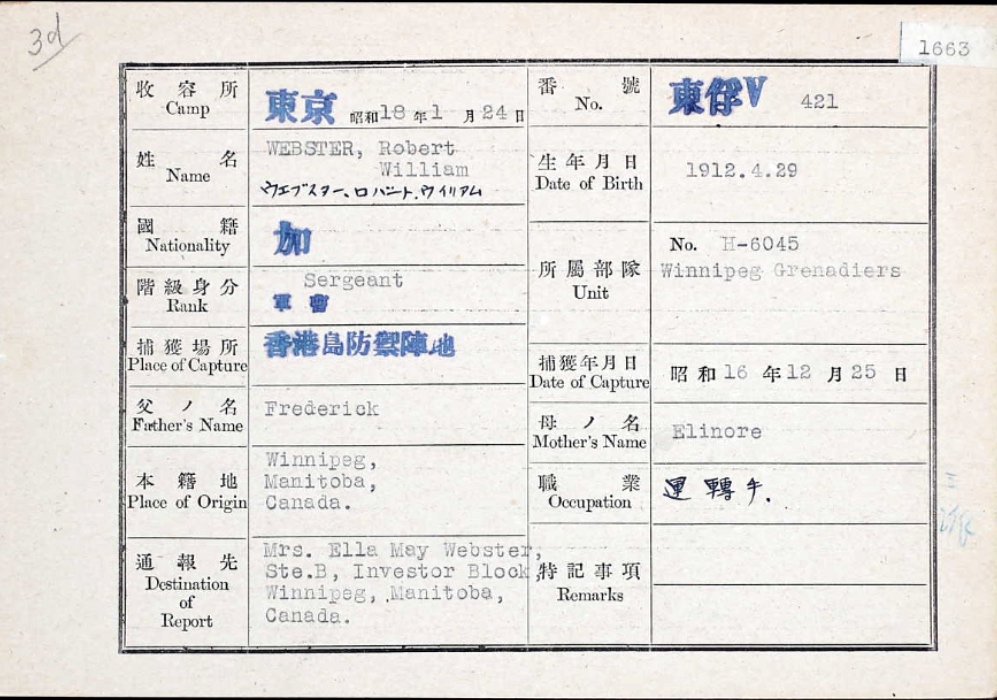 3d
1663
收容所
Camp
東京 昭和18年1月24日
番號
No.
東俘V 421
姓名
Name
WEBSTER, Robert
William
ウエブスター、ロバート、ウイリアム
生年月日
Date of Birth
1912.4.29
國籍
Nationality
加
所屬部隊
Unit
No. H-6045
Winnipeg Grenadiers
階級身分
Rank
Sergeant
軍曹
捕獲場所
Place of Capture
香港島防禦陣地
捕獲年月日
Date of Capture
昭和16年12月25日
父ノ名
Father's Name
Frederick
母ノ名
Mother's Name
Elinore
本籍地
Place of Origin
Winnipeg,
Manitoba,
Canada.
職業
Occupation
運轉手.
通報先
Destination
of
Report
Mrs. Ella May Webster,
Ste.B, Investor Block,
Winnipeg, Manitoba,
Canada.
特記事項
Remarks